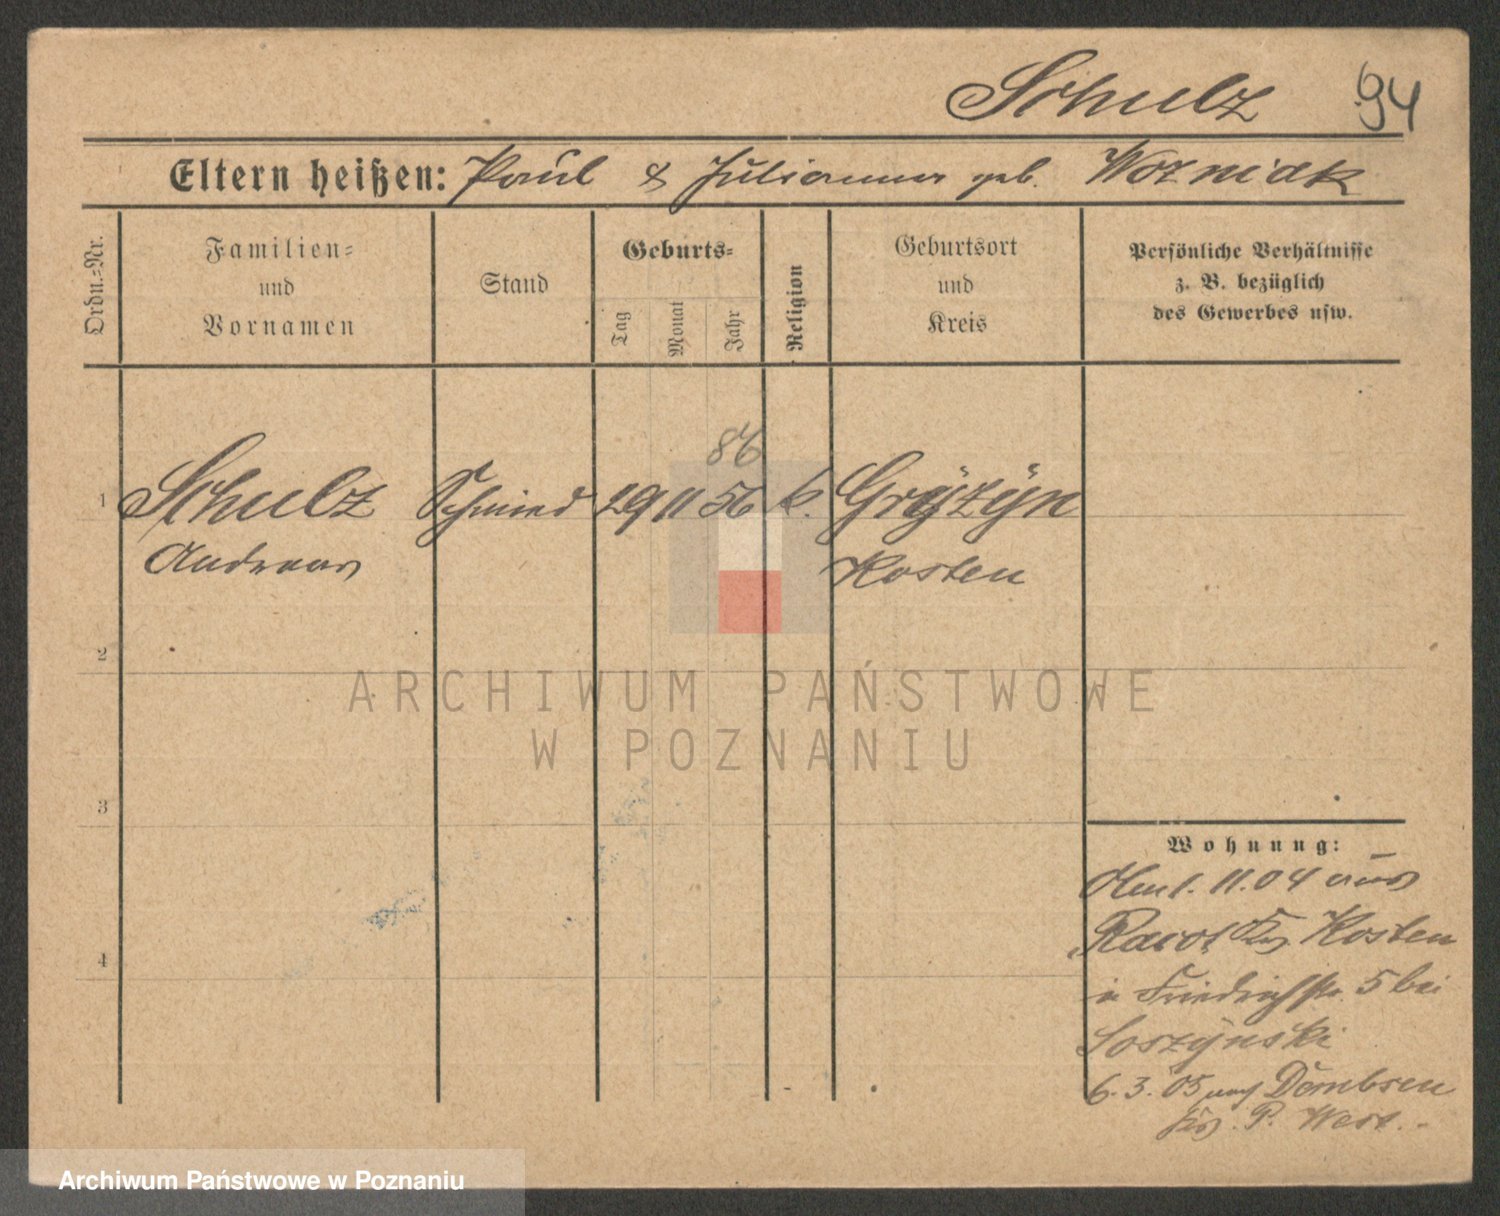 Schulz 94
Eltern heißen: Paul & Julianna geb. Wozniak
Ordn.-Nr.
Familien-
und
Vornamen
Stand
Geburts-
Tag
Monat
Jahr
Religion
Geburtsort
und
Kreis
Persönliche Verhältnisse
z. B. bezüglich
des Gewerbes usw.
86
1 Schulz Schmied 29 11 56 k. Gryżyn
Andreas Kosten
2
3
4
Wohnung:
11.04 aus
Rarot Krs Kosten
in Friedrichstr. 5 bei
Loszynski
6.3.05 nach Dembsen
Krs. P. West.
ARCHIWUM PAŃSTWOWE
W POZNANIU
Archiwum Państwowe w Poznaniu